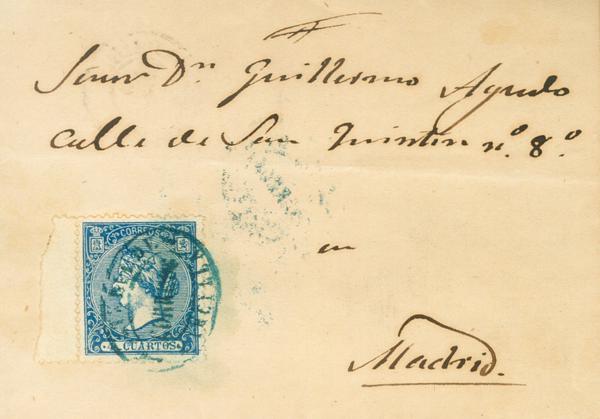 Senor Dn Guillermo Agudo
calle de San Quintin nº 8º.
en
Madrid.
CORREOS
4 CUARTOS